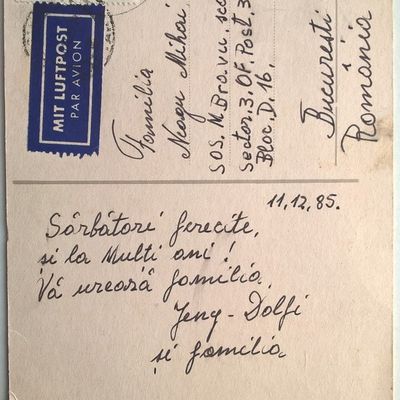 MIT LUFTPOST
PAR AVION
Familia
Neagu Mihai
SOS. M. Bravu. sc
Sector. 3. OF. Post. 3
Bloc. D. 16.
Bucureşti
România
11.12.85.
Sărbători fericite,
şi la Multi ani!
Vă urează familia
Jeny-Dolfi
şi familia